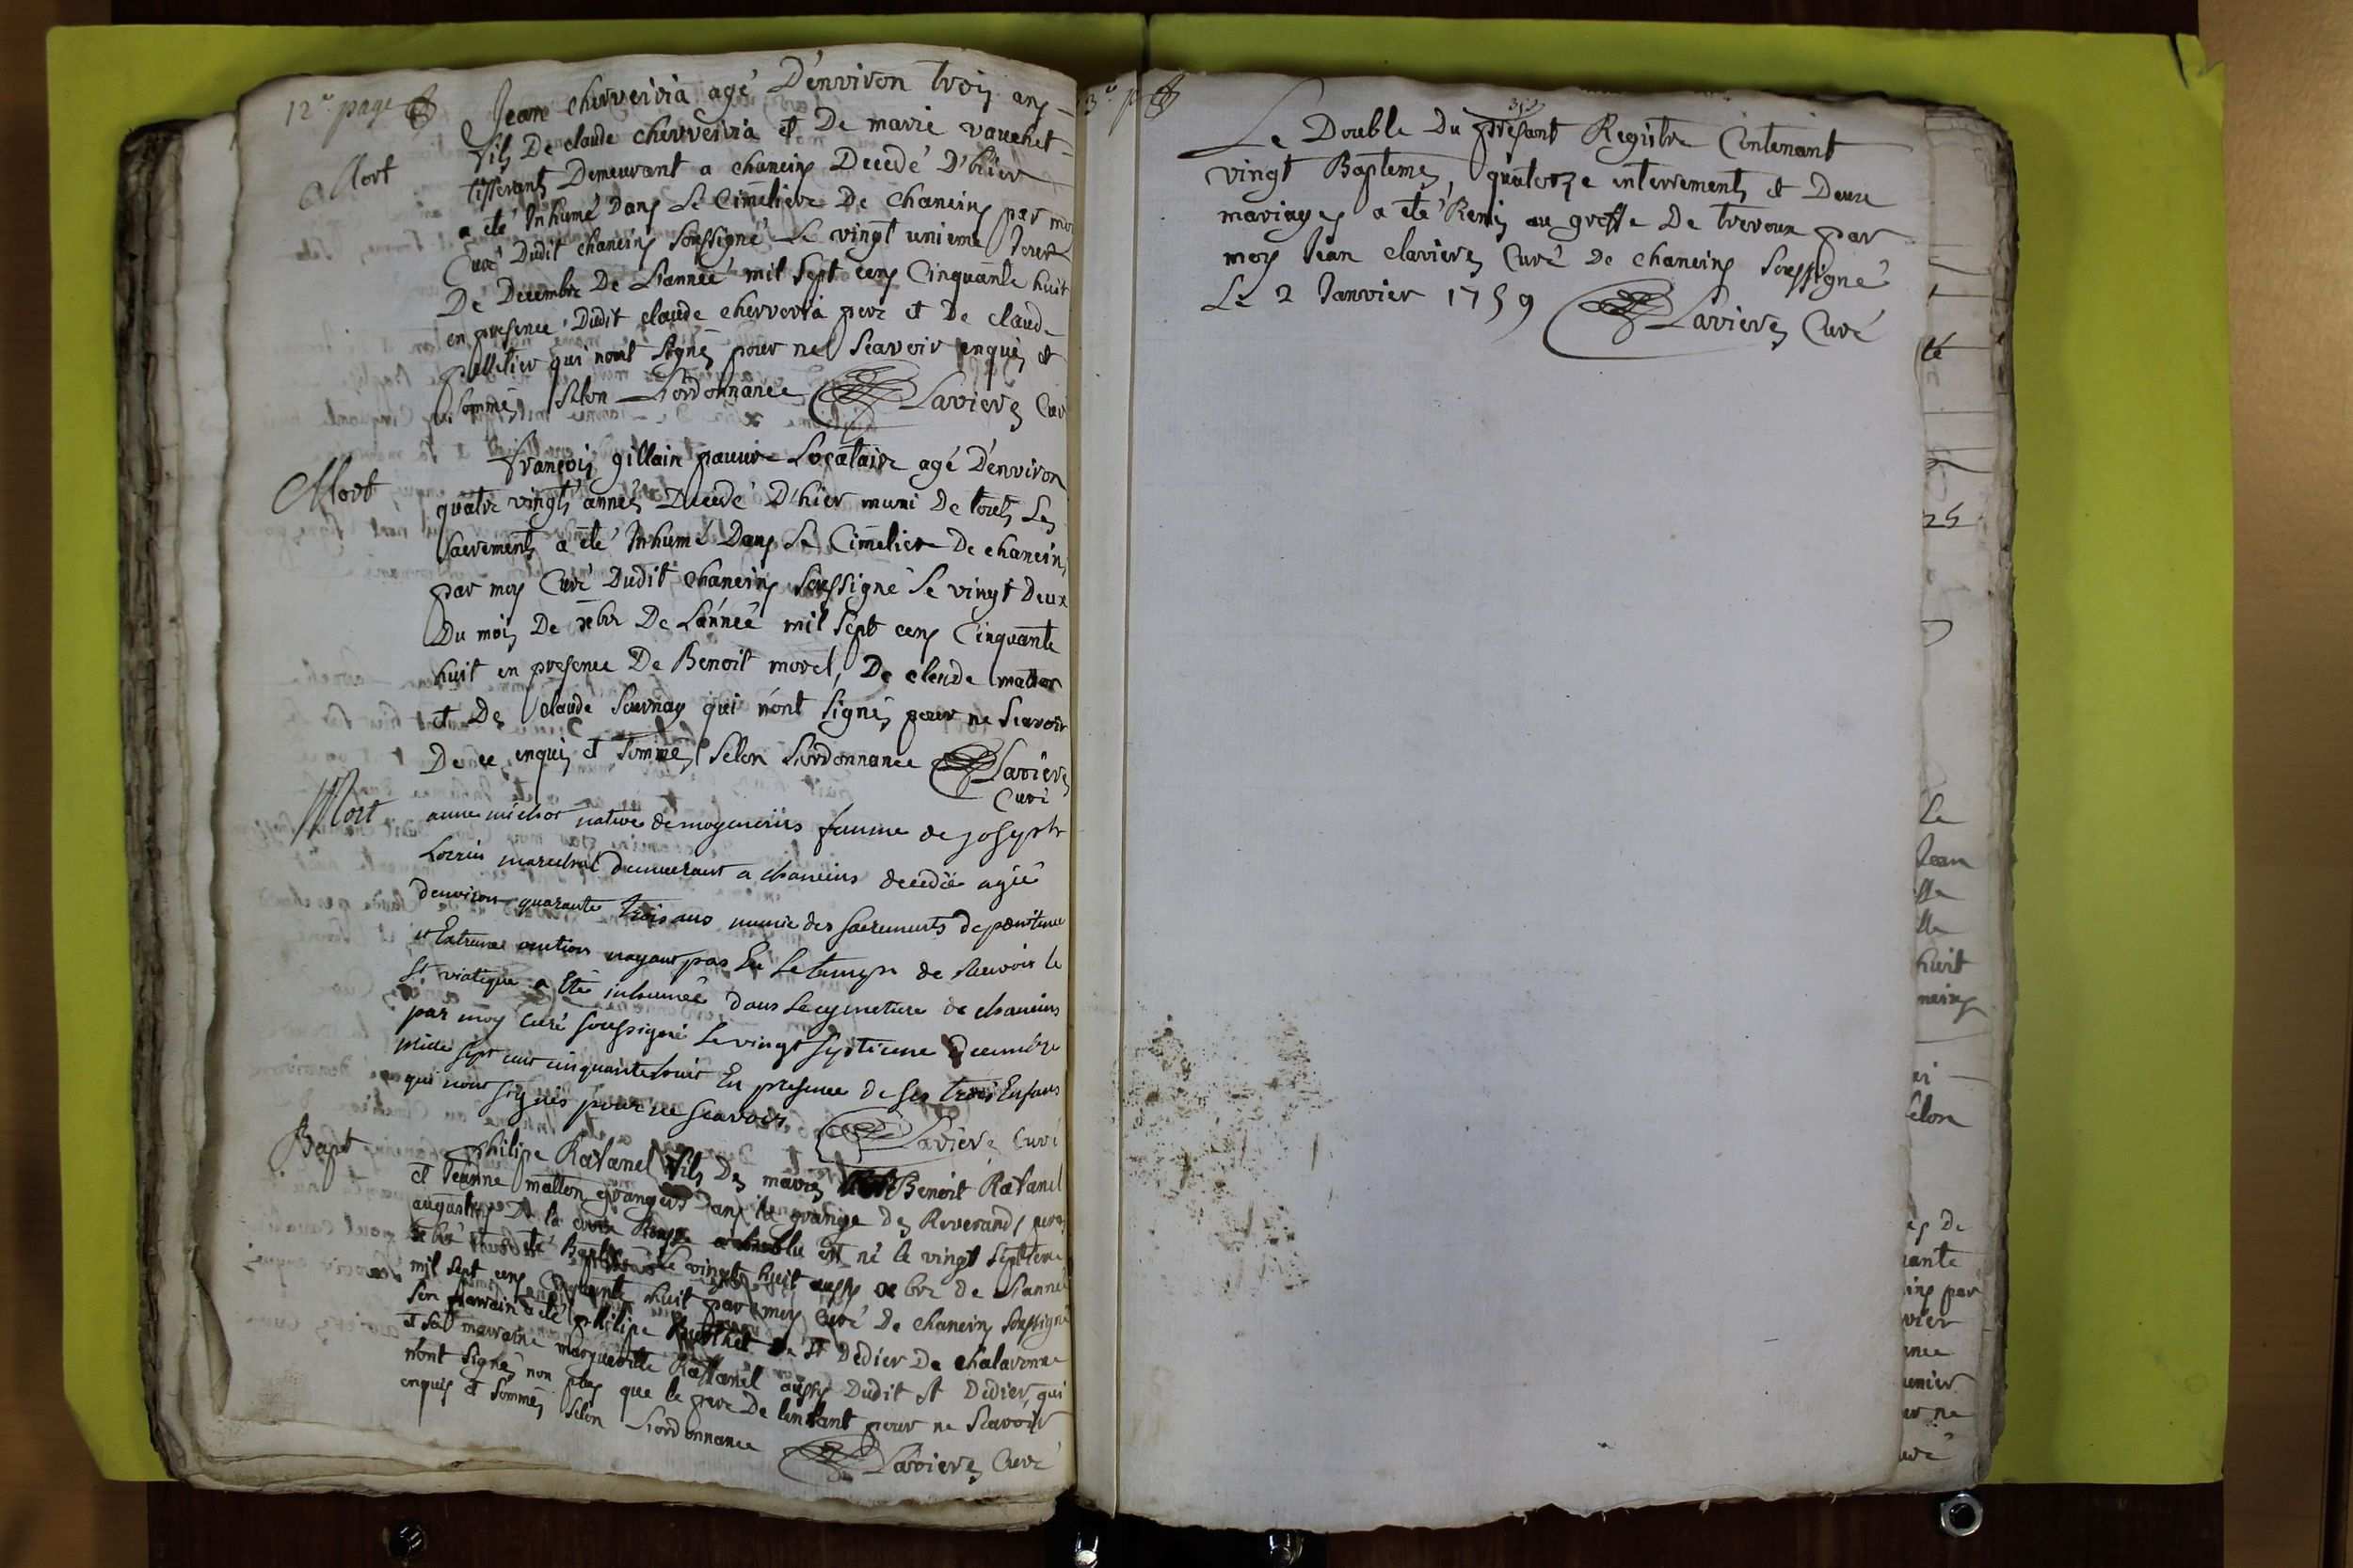 12e page
Mort
Jean cherverira agé D'environ trois ans
fils De claude cherverira et De marie vauchet
tisserants Demeurant a chaneins Decedé D'hier
a été Inhumé Dans Le Cimetiere De Chaneins par moy
Curé Dudit chaneins Soussigné Le vingt unieme Jour
De Decembre De L'année mil Sept cens Cinquante huit
en presence Dudit claude cherverira pere et De claude
pelletier qui n'ont Signés pour ne Scavoir enquis et
Sommés Selon L'ordonnance Clavieres Curé
Mort
françois gillain pauvre Locataire agé D'environ
quatre vingts années Decedé D'hier muni De touts Les
Sacrements a été Inhumé Dans Le Cimetiere De chaneins
par moy Curé Dudit chaneins Soussigné Le vingt Deux
Du mois De xbre De L'année mil Sept cens Cinquante
huit en presence De Benoit morel, De claude matton
et De claude Sournay qui n'ont Signés pour ne Scavoir
De ce enquis et Sommés Selon L'ordonnance Clavieres
Curé
Mort
anne michot native de mogeneins femme de joseph
marechal demeurant a chaneins decedée agée
denviron quarante trois ans munie des sacrements de penitence
et Extreme onction nayant pas Eu Le temps de recevoir le
St viatique a Eté inhumée dans Le cymetiere de chaneins
par moy curé soussigné Le vingt septieme decembre
mille sept cent cinquante huit En presence de ses trois Enfans
qui nont signés pour ne scavoir Clavieres Curé
Bapt
philipe Ratanel fils Des mariés Benoit Ratanel
et Jeanne matton grangers Dans la grange Des Reverands peres
augustins De la croix Rousse est né le vingt Septieme
xbre et a été Baptisé Le vingt huit aussy xbre de L'année
mil Sept cens Cinquante huit par moy Curé De chaneins Soussigné
Son parrain a été philipe De St Dedier De chalaronne
et Sa marraine marguerite Ratanel aussy Dudit St Didier, qui
n'ont Signé non plus que le pere De l'enfant pour ne Scavoir
enquis et Sommés Selon L'ordonnance Clavieres Curé
13e p
Le Double Du present Registre Contenant
vingt Baptemes, quatorze enterrements et Deux
mariages a eté Remis au greffe De trevoux par
moy Jean clavieres Curé De chaneins Soussigné
Le 2 Janvier 1759 Clavieres Curé
té
25
Le
Jean
lle
huit
neins
elon
es de
uante
ins par
vier
nnee
unier
ur ne
uré